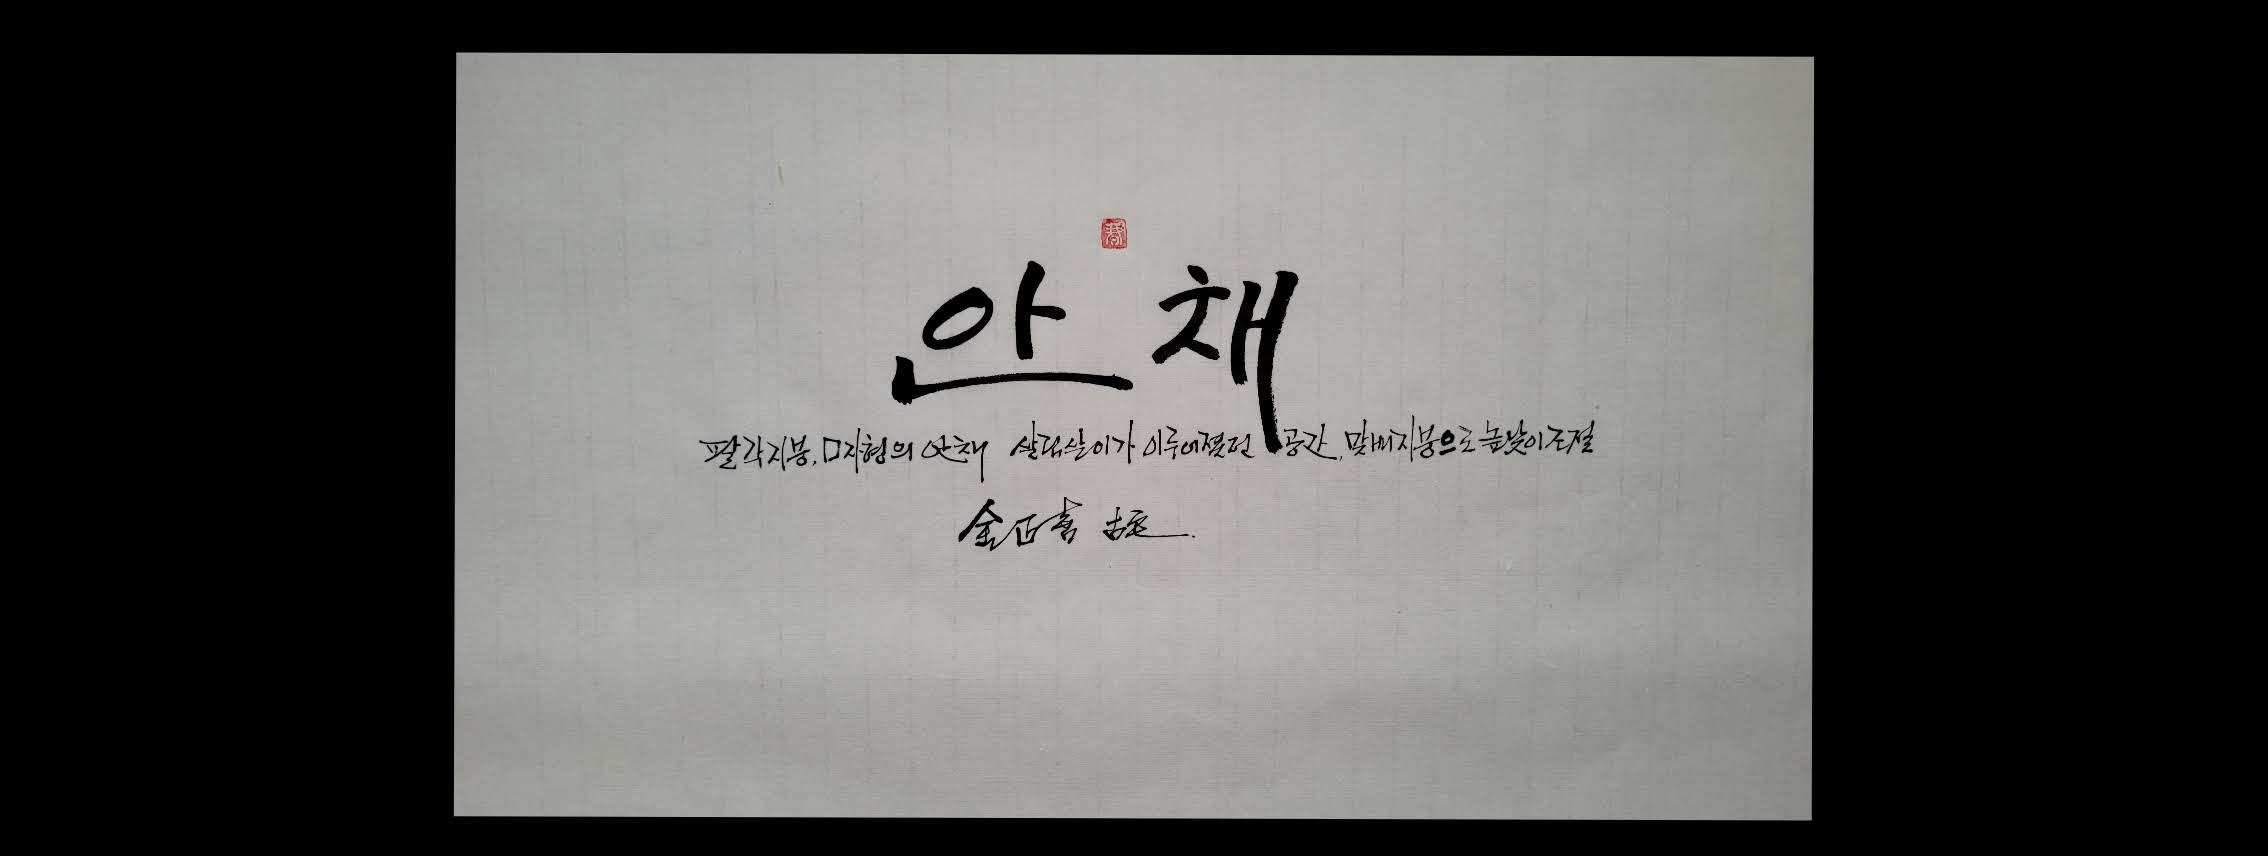 안채
팔각지붕, ㅁ자형의 안채 살림살이가 이루어졌던 공간, 맞배지붕으로 높낮이 조절
金石喜